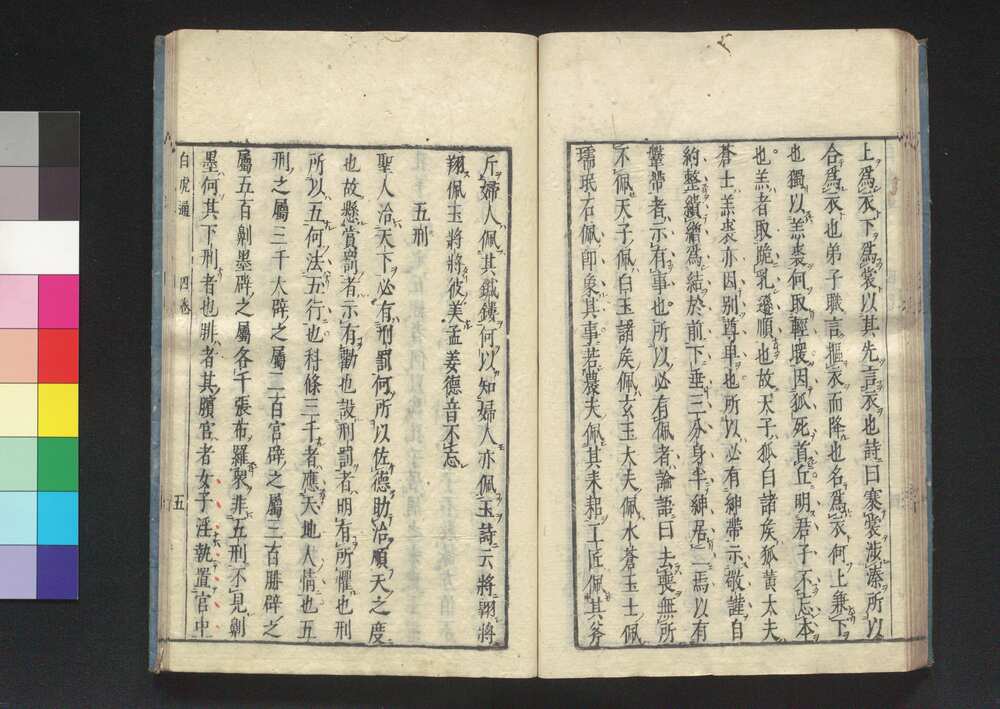 上爲衣下爲裳以其先言衣也詩曰褰裳涉溱所以
合爲衣也弟子職言摳衣而降也名爲衣何上兼下
也獨以羔裘何取輕暖因狐死首丘明君子不忘本
也羔者取跪乳遜順也故天子狐白諸矦狐黃大夫
蒼士羔裘亦因别尊卑也所以必有紳帶示敬謹自
約整繢繒爲結於前下垂三分身半紳居二焉以有
鞶帶者示有事也所以必有佩者論語曰去喪無所
不佩天子佩白玉諸矦佩玄玉大夫佩水蒼玉士佩
瓀珉石佩卽象其事若農夫佩其耒耜工匠佩其斧
斤婦人佩其鍼鏤何以知婦人亦佩玉詩云將翺將
翔佩玉將將彼美孟姜德音不忘
五刑
聖人治天下必有刑罰何所以佐德助治順天之度
也故懸賞罰者示有勸也設刑罰者明有所懼也刑
所以五何法五行也科條三千者應天地人情也五
刑之屬三千大辟之屬二百宮辟之屬三百腓辟之
屬五百劓墨辟之屬各千張布羅衆非五刑不見劓
墨何其下刑者也腓者其臏宮者女子淫執置宮中
白虎通 四卷 五